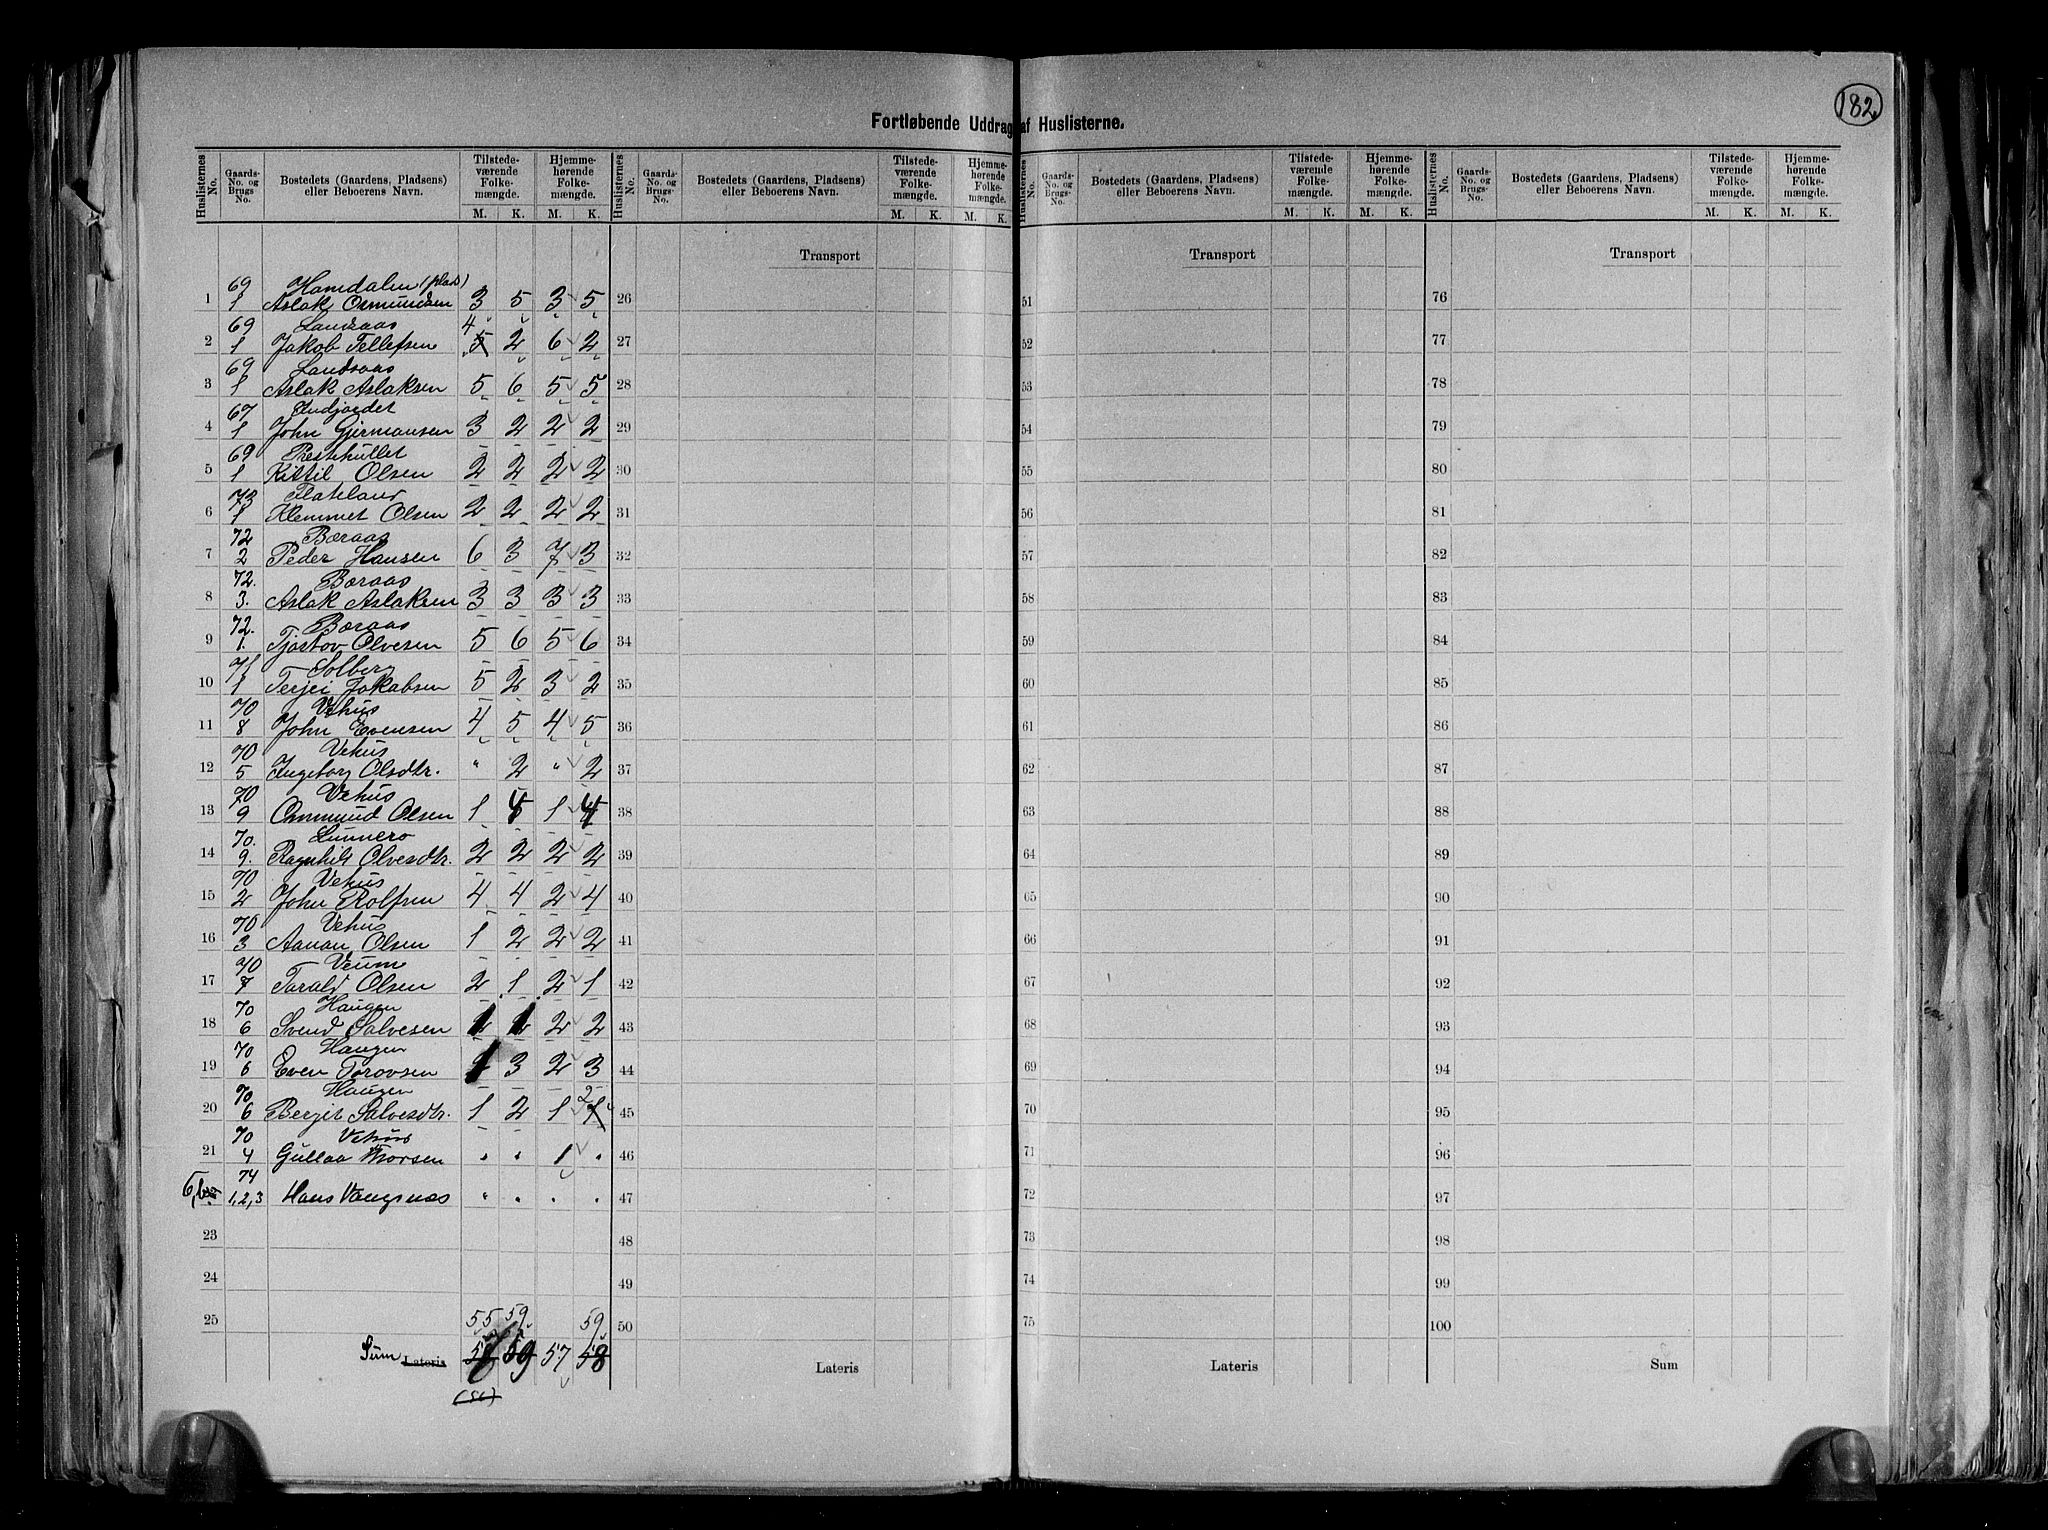 182
Fortløbende Uddrag af Huslisterne.
Huslisternes No. Gaards-No. og Brugs No. Bostedets (Gaardens, Pladsens) eller Beboerens Navn. Tilstedeværende Folkemængde. M. K. Hjemmehørende Folkemængde. M. K.
Huslisternes No. Gaards-No. og Brugs-No. Bostedets (Gaardens, Pladsens) eller Beboerens Navn. Tilstedeværende Folkemængde. M. K. Hjemmehørende Folkemængde. M. K.
Huslisternes No. Gaards-No. og Brugs-No. Bostedets (Gaardens, Pladsens) eller Beboerens Navn. Tilstedeværende Folkemængde. M. K. Hjemmehørende Folkemængde. M. K.
Huslisternes No. Gaards-No. og Brugs-No. Bostedets (Gaardens, Pladsens) eller Beboerens Navn. Tilstedeværende Folkemængde. M. K. Hjemmehørende Folkemængde. M. K.
Transport Transport Transport
69 Hamdalen (plads)
1 1 Aslak Osmundsen 3 5 3 5 26 51 76
69 Landsaas 4
2 1 Jakob Tellefsen 5 2 6 2 27 52 77
69 Landsaas
3 1 Aslak Aslaksen 5 6 5 5 28 53 78
67
4 1 John Gjermansen 3 2 2 2 29 54 79
69
5 1 Kittil Olsen 2 2 2 2 30 55 80
73 Flateland
6 1 Klemmet Olsen 2 2 2 2 31 56 81
72 Børaas
7 2 Peder Hansen 6 3 7 3 32 57 82
72. Børaas
8 3. Aslak Aslaksen 3 3 3 3 33 58 83
72. Børaas
9 1. Tjøstov Olvesen 5 6 5 6 34 59 84
71 Solberg
10 1 Terjei Jakobsen 5 2 3 2 35 60 85
70 Vehus
11 8 John Evensen 4 5 4 5 36 61 86
70 Vehus
12 5 Ingeborg Olsdtr. " 2 " 2 37 62 87
70 Vehus
13 9 Osmund Olsen 1 4 1 4 38 63 88
70. Lunnero
14 9. Ragnhild Olvesdtr. 2 2 2 2 39 64 89
70 Vehus
15 2 John Rolfsen 4 4 2 4 40 65 90
70 Vehus
16 3 Aanan Olsen 1 2 2 2 41 66 91
70 Veum
17 7 Tarald Olsen 2 1 2 1 42 67 92
70 Haugen
18 6 Svend Salvesen 1 1 2 2 43 68 93
70 Haugen
19 6 Even Torovsen 1 3 2 3 44 69 94
70 Haugen 2
20 6 Bergit Salvesdtr. 1 2 1 1 45 70 95
70 Vehus
21 4 Gullaa Thorsen " " 1 " 46 71 96
74
1,2,3 Hans Vangsnæs " " " " 47 72 97
23 48 73 98
24 49 74 99
55 59 59
25 50 75 100
Sum Lateris 59 57 58 Lateris Lateris Sum
(56)